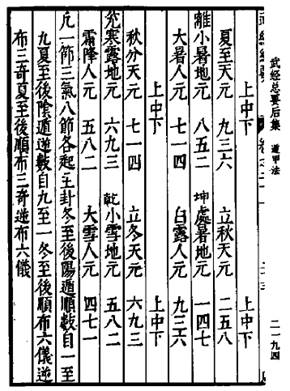 武经总要后集 遁甲法 二一九四
上中下 上中下
夏至天元 九三六 立秋天元 二五八
離小暑地元 八五二 坤處暑地元 一四七
大暑人元 七一四 白露人元 九三六
上中下 上中下
秋分天元 七一四 立冬天元 六九三
兌寒露地元 六九三 乾小雪地元 五八二
霜降人元 五八二 大雪人元 四七一
凡一節三氣八節各起王卦冬至後陽遁順數自一至
九夏至後陰遁逆數自九至一冬至後順布六儀逆
布三奇夏至後順布三奇逆布六儀